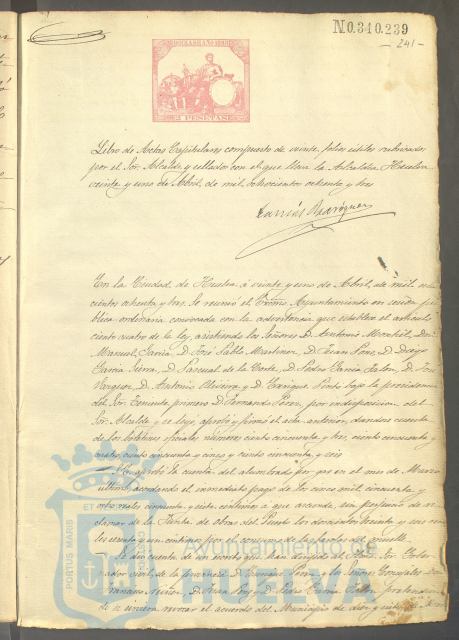 N.0.340.239
- 241 -
2 PESETAS
Libro de Actas Capitulares compuesto de veinte folios útiles rubricados
por el Sor. Alcalde y sellado con el que lleva la Alcaldía. Huelva
veinte y uno de Abril, de mil ochocientos ochenta y tres
Rodriguez
En la Ciudad de Huelva á veinte y uno de Abril, de mil ocho
cientos ochenta y tres. Se reunió el Excmo. Ayuntamiento en sesión pú
blica ordinaria convocada con la advertencia que establece el artículo
ciento cuatro de la ley, asistiendo los Señores D. Antonio Don
Manuel García, D. José Pablo Martinez, D. Juan Pons, D. Diego
García D. Pascual de la Corte, D. Pedro García D. José
Vazquez, D. Antonio Oliveira y D. Enrique bajo la presidencia
del Sor. Teniente primero D. Fernando Perez, por indisposición del
Sor. Alcalde y se leyó, aprobó y firmó el acta anterior, dandose cuenta
de los boletines oficiales números ciento cincuenta y tres, ciento cincuenta y
cuatro, ciento cincuenta y cinco y ciento cincuenta y seis
Se aprobó la cuenta del alumbrado por gas en el mes de Marzo
último, acordando el inmediato pago de los cinco mil cincuenta y
ocho reales cincuenta y siete céntimos á que asciende, sin perjuicio de re
clamar de la Junta de obras del Puerto los doscientos treinta y seis rea
les y un céntimo por el consumo de las farolas del muelle
Se dió cuenta de un escrito que han dirigido al Sor. Gober
nador civil de la provincia D. y los Señores Gonzalez, Don
Francisco D. Juan D. García
de se sirviera revocar el acuerdo del Municipio de diez y siete de
PORTUS MARIS ET
Ayuntamiento de
HUELVA